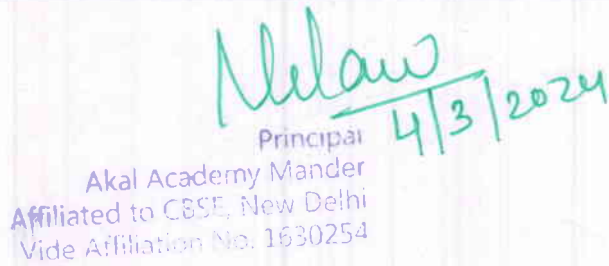 4/3/2024
Principal
Akal Academy Mander
Affiliated to CBSE, New Delhi
Vide Affiliation No. 1630254